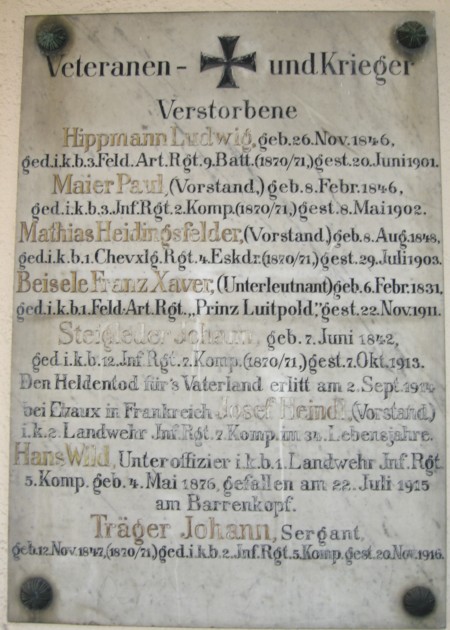 Veteranen- und Krieger
Verstorbene
Hippmann Ludwig, geb. 26. Nov. 1846,
ged. i. k. b. 3. Feld. Art. Rgt. 9. Batt. (1870/71,) gest. 20. Juni 1901.
Maier Paul, (Vorstand,) geb. 8. Febr. 1846,
ged. i. k. b. 3. Jnf. Rgt. 2. Komp. (1870/71,) gest. 8. Mai 1902.
Mathias Heidingsfelder, (Vorstand,) geb. 8. Aug. 1848,
ged. i. k. b. 1. Chevxlg. Rgt. 4. Eskdr. (1870/71,) gest. 29. Juli 1903.
Beisele Franz Xaver, (Unterleutnant) geb. 6. Febr. 1831,
ged. i. k. b. 1. Feld-Art. Rgt. „Prinz Luitpold," gest. 22. Nov. 1911.
Steigleder Johann, geb. 7. Juni 1842,
ged. i. k. b. 12. Jnf. Rgt. 7. Komp. (1870/71,) gest. 7. Okt. 1913.
Den Heldentod für's Vaterland erlitt am 2. Sept. 1914
bei Chaux in Frankreich Josef Heindl, (Vorstand,)
i. k. 2. Landwehr Jnf. Rgt. 7. Komp. im Lebensjahre.
Hans Wild, Unteroffizier i. k. b. 1. Landwehr Jnf. Rgt.
5. Komp. geb. 4. Mai 1876, gefallen am 22. Juli 1915
am Barrenkopf.
Träger Johann, Sergant,
geb. 12. Nov. 1847, (1870/71) ged. i. k. b. 2. Jnf. Rgt. 5. Komp. gest. 20. Nov. 1916.